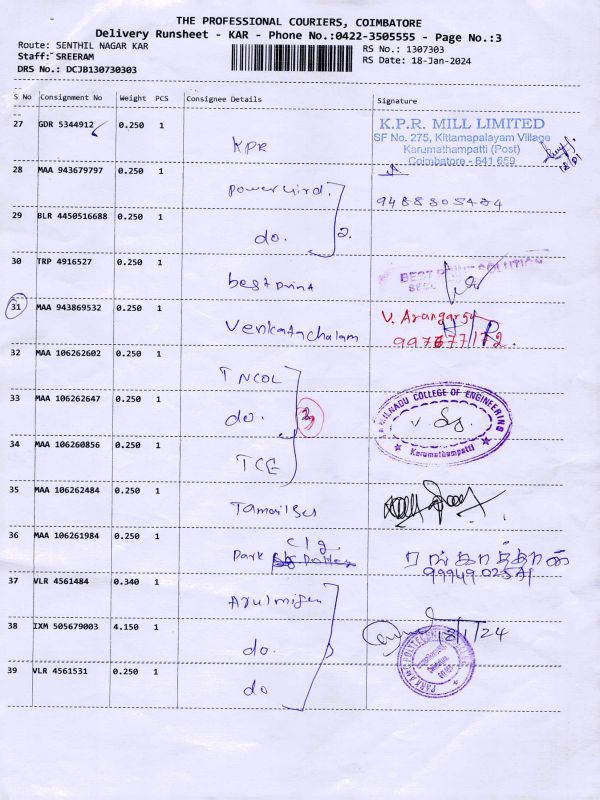 THE PROFESSIONAL COURIERS, COIMBATORE
Delivery Runsheet - KAR - Phone No.:0422-3505555 - Page No.:3
Route: SENTHIL NAGAR KAR
RS No.: 1307303
Staff: SREERAM
RS Date: 18-Jan-2024
DRS No.: DCJB130730303
S No Consignment No Weight PCS Consignee Details Signature
27 GDR 5344912 0.250 1 KPR
K.P.R. MILL LIMITED
SF No. 275, Kittampalayam Village
Karumathampatti (Post)
Coimbatore - 641 659
28 MAA 943679797 0.250 1
29 BLR 4450516688 0.250 1 do. 2.
30 TRP 4916527 0.250 1 best print
BEST PRINT SOLUTION
31 MAA 943869532 0.250 1 Venkatachalam
32 MAA 106262602 0.250 1 TNCOL
33 MAA 106262647 0.250 1 do. 3
TAMILNADU COLLEGE OF ENGINEERING
Karumathampatti
34 MAA 106260856 0.250 1 TCE
35 MAA 106262484 0.250 1
36 MAA 106261984 0.250 1 Park clg
37 VLR 4561484 0.340 1
38 IXM 505679003 4.150 1 do.
18/1/24
39 VLR 4561531 0.250 1 do